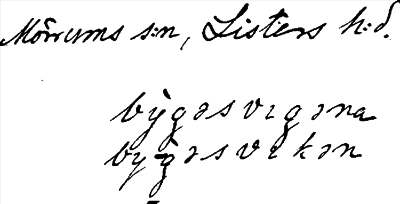 Mörrums s:n, Listers h:d.
bỳgəsvıgəna
bygəsvikən